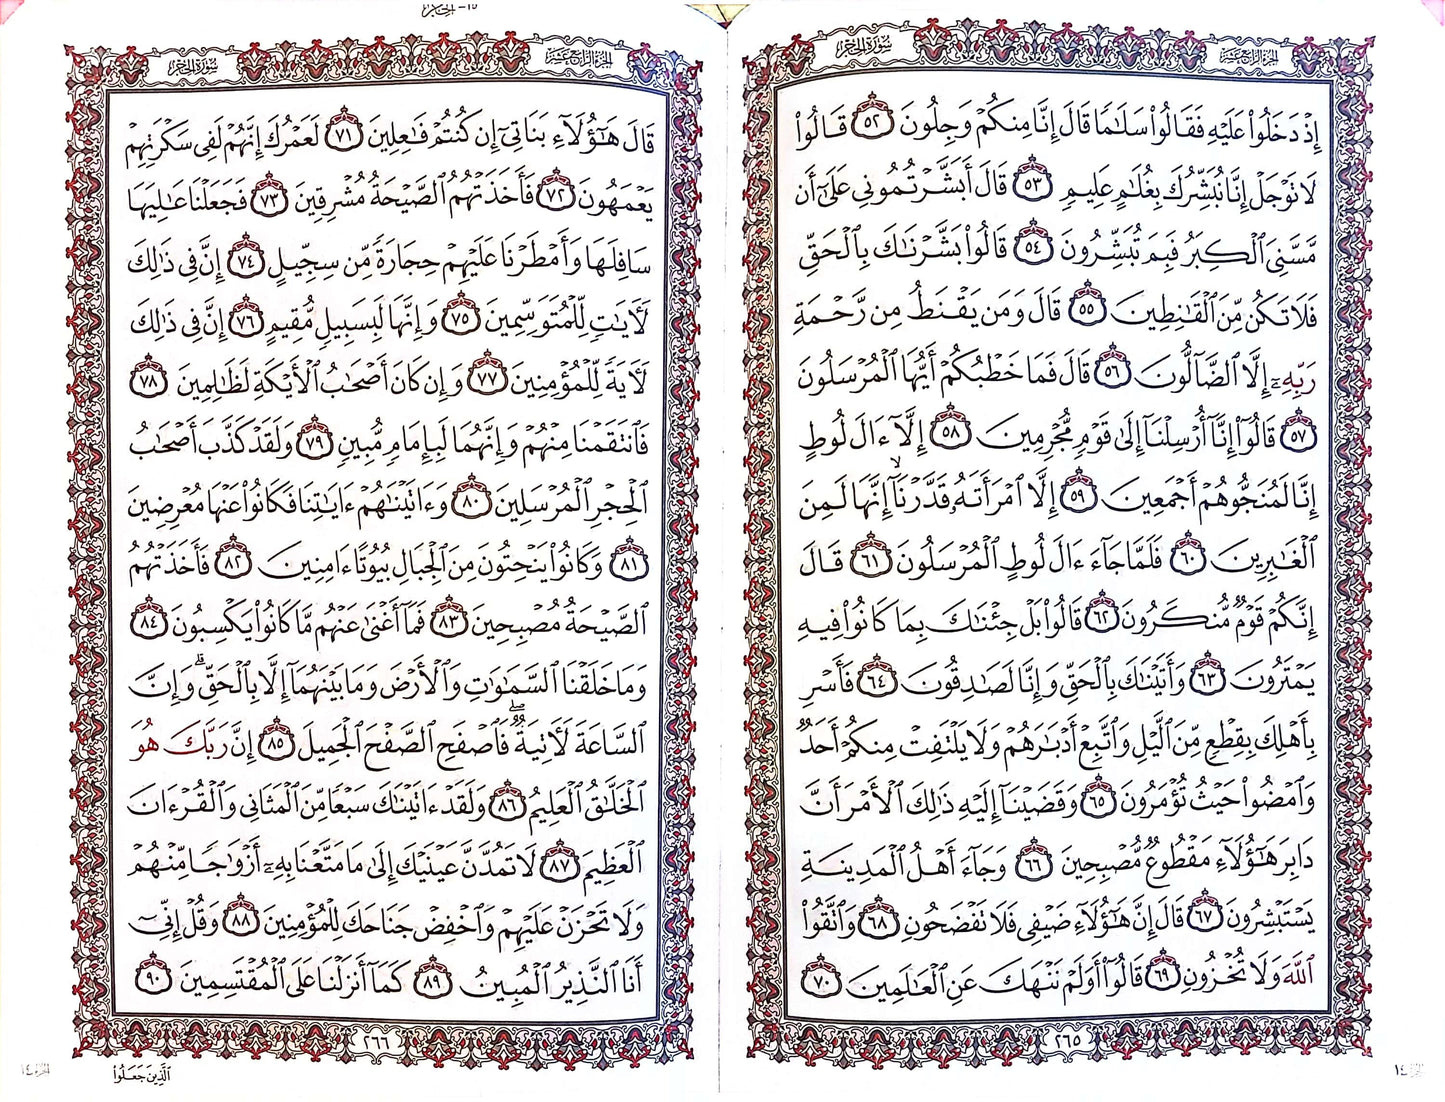 ١٥- الحجر
الجزء الرابع عشر
سورة الحجر
إِذْ دَخَلُوا۟ عَلَيْهِ فَقَالُوا۟ سَلَٰمًا قَالَ إِنَّا مِنكُمْ وَجِلُونَ ٥٢ قَالُوا۟
لَا تَوْجَلْ إِنَّا نُبَشِّرُكَ بِغُلَٰمٍ عَلِيمٍ ٥٣ قَالَ أَبَشَّرْتُمُونِى عَلَىٰٓ أَن
مَّسَّنِىَ ٱلْكِبَرُ فَبِمَ تُبَشِّرُونَ ٥٤ قَالُوا۟ بَشَّرْنَٰكَ بِٱلْحَقِّ
فَلَا تَكُن مِّنَ ٱلْقَٰنِطِينَ ٥٥ قَالَ وَمَن يَقْنَطُ مِن رَّحْمَةِ
رَبِّهِۦٓ إِلَّا ٱلضَّآلُّونَ ٥٦ قَالَ فَمَا خَطْبُكُمْ أَيُّهَا ٱلْمُرْسَلُونَ
٥٧ قَالُوٓا۟ إِنَّآ أُرْسِلْنَآ إِلَىٰ قَوْمٍ مُّجْرِمِينَ ٥٨ إِلَّآ ءَالَ لُوطٍ
إِنَّا لَمُنَجُّوهُمْ أَجْمَعِينَ ٥٩ إِلَّا ٱمْرَأَتَهُۥ قَدَّرْنَآ ۙ إِنَّهَا لَمِنَ
ٱلْغَٰبِرِينَ ٦٠ فَلَمَّا جَآءَ ءَالَ لُوطٍ ٱلْمُرْسَلُونَ ٦١ قَالَ
إِنَّكُمْ قَوْمٌ مُّنكَرُونَ ٦٢ قَالُوا۟ بَلْ جِئْنَٰكَ بِمَا كَانُوا۟ فِيهِ
يَمْتَرُونَ ٦٣ وَأَتَيْنَٰكَ بِٱلْحَقِّ وَإِنَّا لَصَٰدِقُونَ ٦٤ فَأَسْرِ
بِأَهْلِكَ بِقِطْعٍ مِّنَ ٱلَّيْلِ وَٱتَّبِعْ أَدْبَٰرَهُمْ وَلَا يَلْتَفِتْ مِنكُمْ أَحَدٌ
وَٱمْضُوا۟ حَيْثُ تُؤْمَرُونَ ٦٥ وَقَضَيْنَآ إِلَيْهِ ذَٰلِكَ ٱلْأَمْرَ أَنَّ
دَابِرَ هَٰٓؤُلَآءِ مَقْطُوعٌ مُّصْبِحِينَ ٦٦ وَجَآءَ أَهْلُ ٱلْمَدِينَةِ
يَسْتَبْشِرُونَ ٦٧ قَالَ إِنَّ هَٰٓؤُلَآءِ ضَيْفِى فَلَا تَفْضَحُونِ ٦٨ وَٱتَّقُوا۟
ٱللَّهَ وَلَا تُخْزُونِ ٦٩ قَالُوٓا۟ أَوَلَمْ نَنْهَكَ عَنِ ٱلْعَٰلَمِينَ ٧٠
٢٦٥
الجزء ١٤
الجزء الرابع عشر
سورة الحجر
قَالَ هَٰٓؤُلَآءِ بَنَاتِىٓ إِن كُنتُمْ فَٰعِلِينَ ٧١ لَعَمْرُكَ إِنَّهُمْ لَفِى سَكْرَتِهِمْ
يَعْمَهُونَ ٧٢ فَأَخَذَتْهُمُ ٱلصَّيْحَةُ مُشْرِقِينَ ٧٣ فَجَعَلْنَا عَٰلِيَهَا
سَافِلَهَا وَأَمْطَرْنَا عَلَيْهِمْ حِجَارَةً مِّن سِجِّيلٍ ٧٤ إِنَّ فِى ذَٰلِكَ
لَءَايَٰتٍ لِّلْمُتَوَسِّمِينَ ٧٥ وَإِنَّهَا لَبِسَبِيلٍ مُّقِيمٍ ٧٦ إِنَّ فِى ذَٰلِكَ
لَءَايَةً لِّلْمُؤْمِنِينَ ٧٧ وَإِن كَانَ أَصْحَٰبُ ٱلْأَيْكَةِ لَظَٰلِمِينَ ٧٨
فَٱنتَقَمْنَا مِنْهُمْ وَإِنَّهُمَا لَبِإِمَامٍ مُّبِينٍ ٧٩ وَلَقَدْ كَذَّبَ أَصْحَٰبُ
ٱلْحِجْرِ ٱلْمُرْسَلِينَ ٨٠ وَءَاتَيْنَٰهُمْ ءَايَٰتِنَا فَكَانُوا۟ عَنْهَا مُعْرِضِينَ
٨١ وَكَانُوا۟ يَنْحِتُونَ مِنَ ٱلْجِبَالِ بُيُوتًا ءَامِنِينَ ٨٢ فَأَخَذَتْهُمُ
ٱلصَّيْحَةُ مُصْبِحِينَ ٨٣ فَمَآ أَغْنَىٰ عَنْهُم مَّا كَانُوا۟ يَكْسِبُونَ ٨٤
وَمَا خَلَقْنَا ٱلسَّمَٰوَٰتِ وَٱلْأَرْضَ وَمَا بَيْنَهُمَآ إِلَّا بِٱلْحَقِّ ۗ وَإِنَّ
ٱلسَّاعَةَ لَءَاتِيَةٌ ۖ فَٱصْفَحِ ٱلصَّفْحَ ٱلْجَمِيلَ ٨٥ إِنَّ رَبَّكَ هُوَ
ٱلْخَلَّٰقُ ٱلْعَلِيمُ ٨٦ وَلَقَدْ ءَاتَيْنَٰكَ سَبْعًا مِّنَ ٱلْمَثَانِى وَٱلْقُرْءَانَ
ٱلْعَظِيمَ ٨٧ لَا تَمُدَّنَّ عَيْنَيْكَ إِلَىٰ مَا مَتَّعْنَا بِهِۦٓ أَزْوَٰجًا مِّنْهُمْ
وَلَا تَحْزَنْ عَلَيْهِمْ وَٱخْفِضْ جَنَاحَكَ لِلْمُؤْمِنِينَ ٨٨ وَقُلْ إِنِّىٓ
أَنَا ٱلنَّذِيرُ ٱلْمُبِينُ ٨٩ كَمَآ أَنزَلْنَا عَلَى ٱلْمُقْتَسِمِينَ ٩٠
٢٦٦
ٱلَّذِينَ جَعَلُوا۟
الجزء ١٤